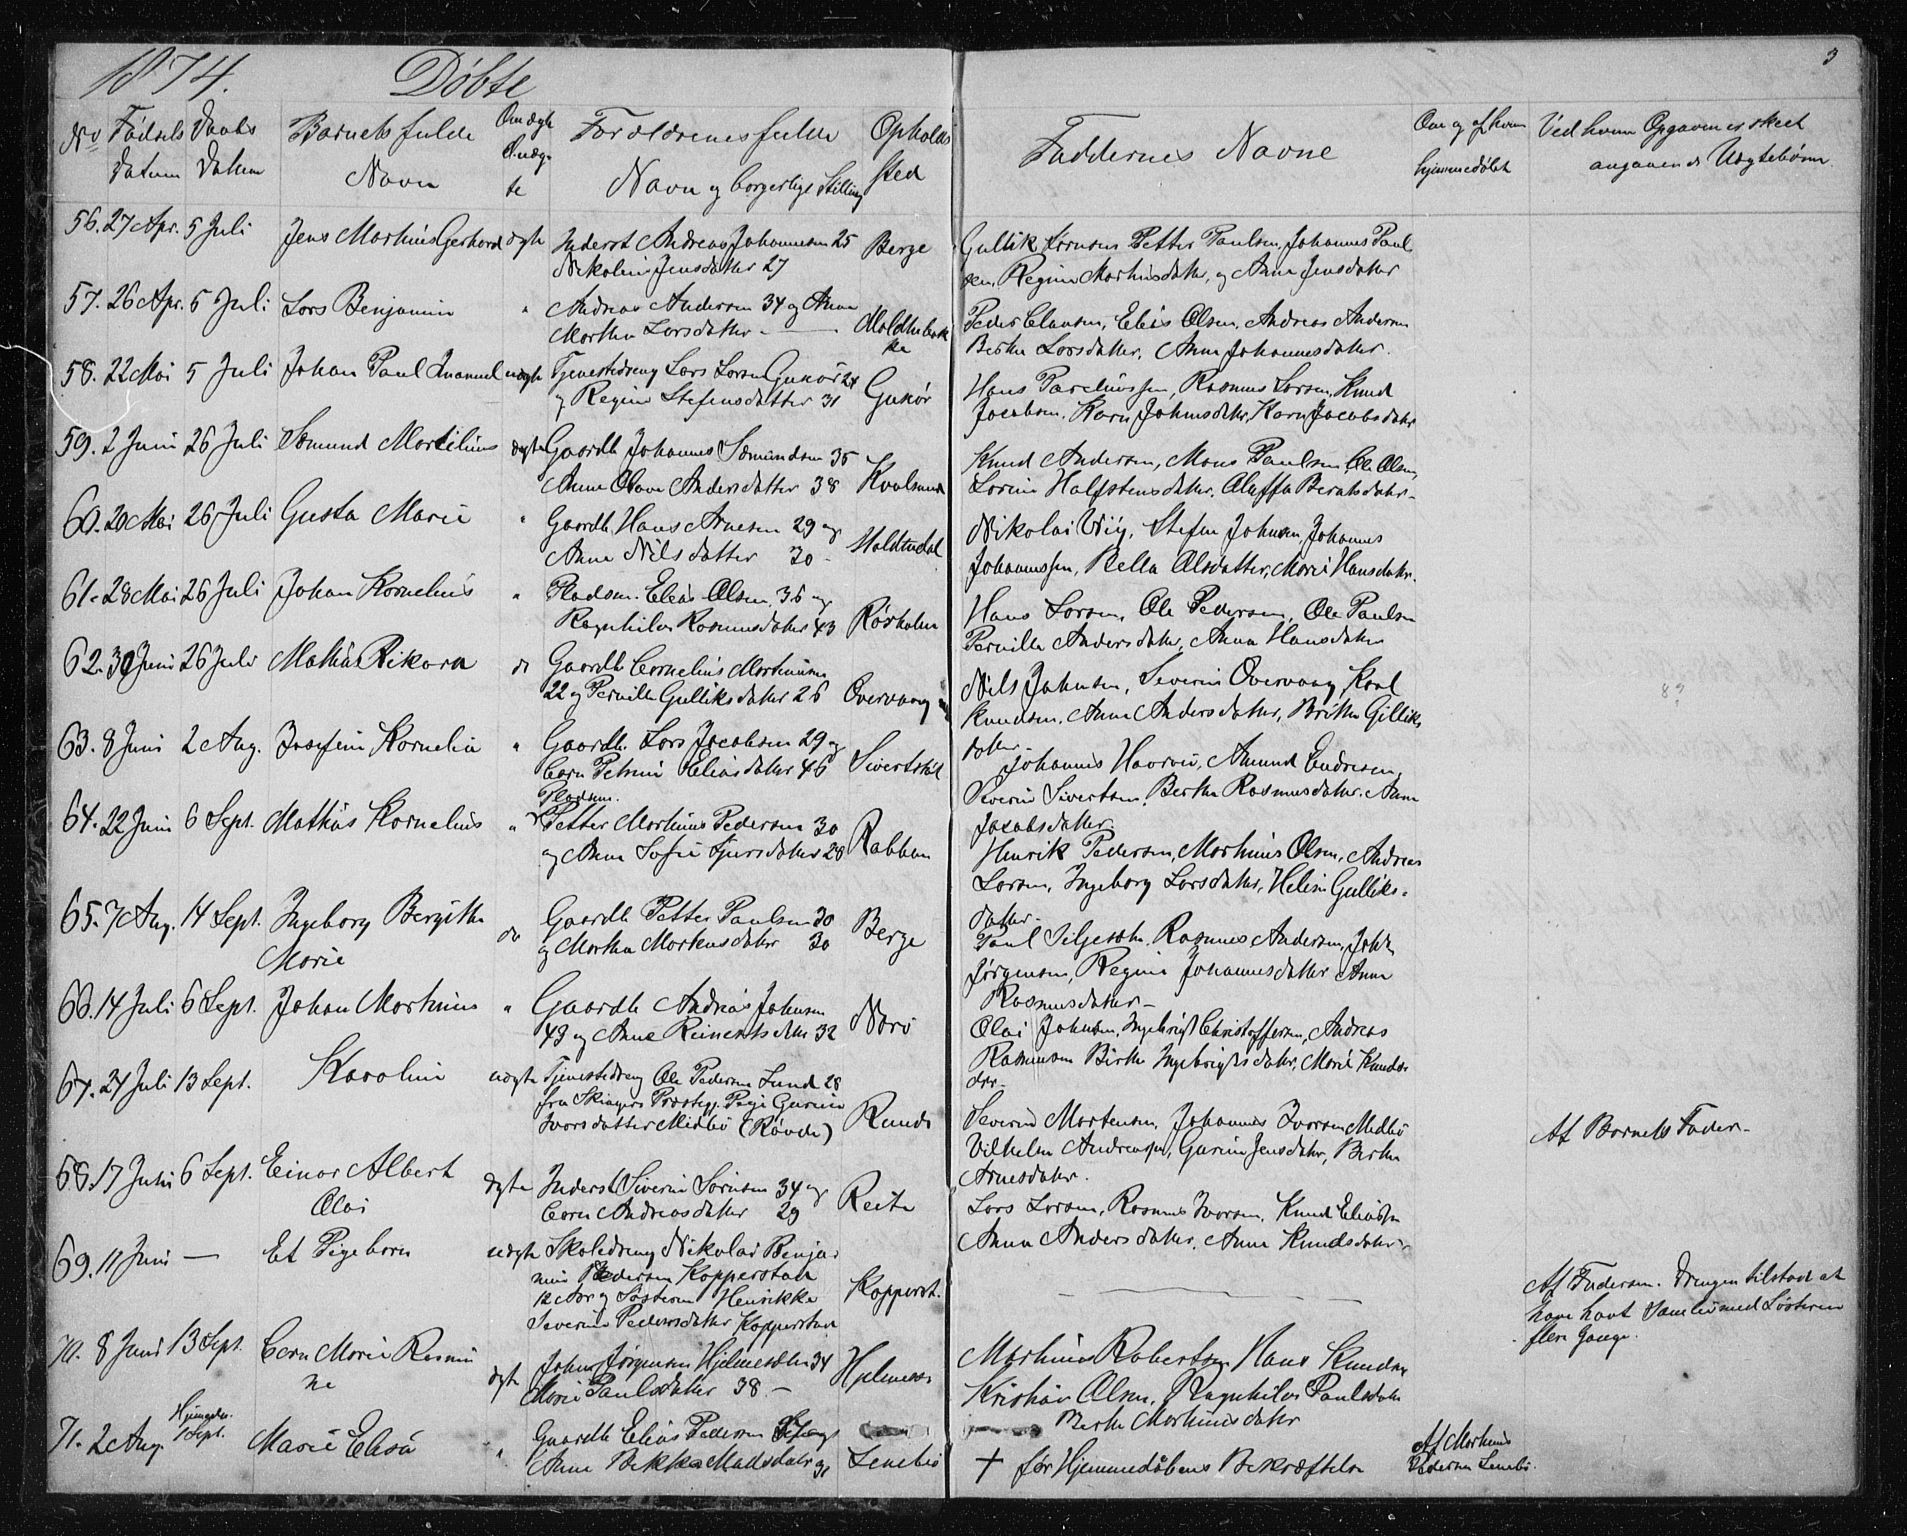 1874. Döbte
3
No Födsels Datum
Daabs Datum
Barnets fulde Navn
Om ægte el. uægte
Forældrenes fulde Navn og borgerlige Stilling
Opholds sted
Faddernes Navne
Om og af hvem hjemmedöbt
Ved hvem Opgaven er skeet angaaende Uægtebörn
56. 27 Apr. 5 Juli Jens Martinus Gerhard ægte Inderst Andreas Johannesen 25 Berge Gullik Larsen Petter Paulsen, Johannes Paul
Nikoline Jensdatter 27 sen, Regine Martinusdatter, og Anne Jensdatter
57. 26 Apr. 5 Juli Lars Benjamin " Andreas Andersen 34 og Anne Peder Clausen, Elias Olsen, Andreas Andersen
Martha Larsdatter - Moldtubakke Berthe Larsdatter, Anne Johannesdatter.
58. 22 Mai 5 Juli Johan Paul Imanuel uægte Tjenestedreng Lars Larsen Gurskör 24 Hans Parelinssen, Rasmus Larsen, Knud
og Regine Steffensdatter 31 Gurskör Jacobsen, Karn Johnsdatter, Karn Jacobsdatter
59. 2 Juni 26 Juli Sæmund Martilius ægte Gaardb Johannes Sæmundsen 35 Knud Andersen, Mons Paulsen, Ole Olsen,
Anne Olave Andersdatter 38 Kvalsund Lorine Halfstensdatter, Oluffa Berntsdatter
60. 20 Mai 26 Juli Gusta Marie " Gaardb. Hans Arnesen 29 og Nikolai Wiig, Steffen Johnsen, Johannes
Anne Nilsdatter 30 - Moldtudal Johannessen, Pella Olsdatter, Marie Hansdatter.
61. 28 Mai 26 Juli Johan Kornelius " Pladsm. Elias Olsen 36 og Hans Larsen, Ole Pedersen, Ole Paulsen
Ragnhilda Rasmusdatter 43 Rösholm Pernille Andersdatter, Anna Hansdatter
62. 30 Juni 26 Juli Mathis Rikard do Gaardb. Cornelius Martinussen Nils Johnsen, Severin Overvaag, Karl
22 og Pernille Gulliksdatter 26 Overvaag Knudsen, Anne Andersdatter, Brithe Gilliks
datter
63. 8 Juni 2 Aug. Josefine Kornelia " Gaardb. Lars Jacobsen 29 og Johannes Havröi, Amund Endresen
Carn Petrine Eliasdatter 46 Severin Sivertsen, Berthe Rasmusdatter, Anne
Jacobsdatter.
64. 22 Juni 6 Sept. Mathias Kornelius " Pladsm.
Petter Martinus Pedersen 30 Henrik Pedersen, Martinus Olsen, Andreas
og Anne Sofie 28 Rabben Larsen, Ingeborg Larsdatter, Heline Gulliks-
datter.
65. 7 Aug. 14 Sept. Ingeborg Bergithe do Gaardb Petter Paulsen 30 Paul Rasmus Andersen, John
Marie og Martha Mortensdatter 30 Berge Jörgensen, Regine Johannesdatter Anne
Rasmusdatter -
66. 14 Juli 6 Sept. Johan Martinus " Gaardb Andreas Johnsen Olai Johnsen, Ingebrigt Christoffersen, Andreas
43 og Anne Reinertsdtter 32 Nærö Rasmussen Birthe Ingebrigtsdatter, Marie Knuds
dtr.
67. 24 Juli 13 Sept. Karoline uægte Tjenestedreng Ole Pedersen Lund 28 Severin Mortensen, Johannes Ivarsen Medbö
fra Præstegj. Pige Gurine Vilhelm Andreassen, Gurine Jensdatter, Berthe
Ivarsdatter Midbö (Rövde) Runde Arnesdatter. Af Barnets Fader -
68. 17 Juni 6 Sept. Einar Albert ægte Inderst Siverin Sörensen 34 og Lars Larsen, Rasmus Ivarsen, Knud Eliassen
Olai Carn Andreasdatter 29 Reite Anna Andersdatter, Anne Knudsdatter
69. 11 Juni — Et Pigebarn uægte Skoledreng Nikolai Benja
min Pedersen Kopperstad
12 Aar og Søsteren Henrikke Kopperst.
Severine Pedersdatter Kopperstad
Af Faderen. Drengen tilstod at
have havt Samleie med Søsteren
flere Gange.
70. 8 Juni 13 Sept. Carn Marie Rasmi ægte Johan Jörgensen Hjelmeseter 34 Martinus Robertsen, Hans Knudsen
ne Marie Paulsdatter 38 - Kristian Olsen, Ragnhilda Paulsdatter
Berthe Martinusdatter
71. 2 Aug. Hjemmedöbt 1 Sept. Marie Elisa " Gaardb Elias Pedersen og
Anne Bekka Madsdatter 31 Lenebö † før Hjemmedåbens Bekræftelse
Af Martinus Pedersen Lenebö.